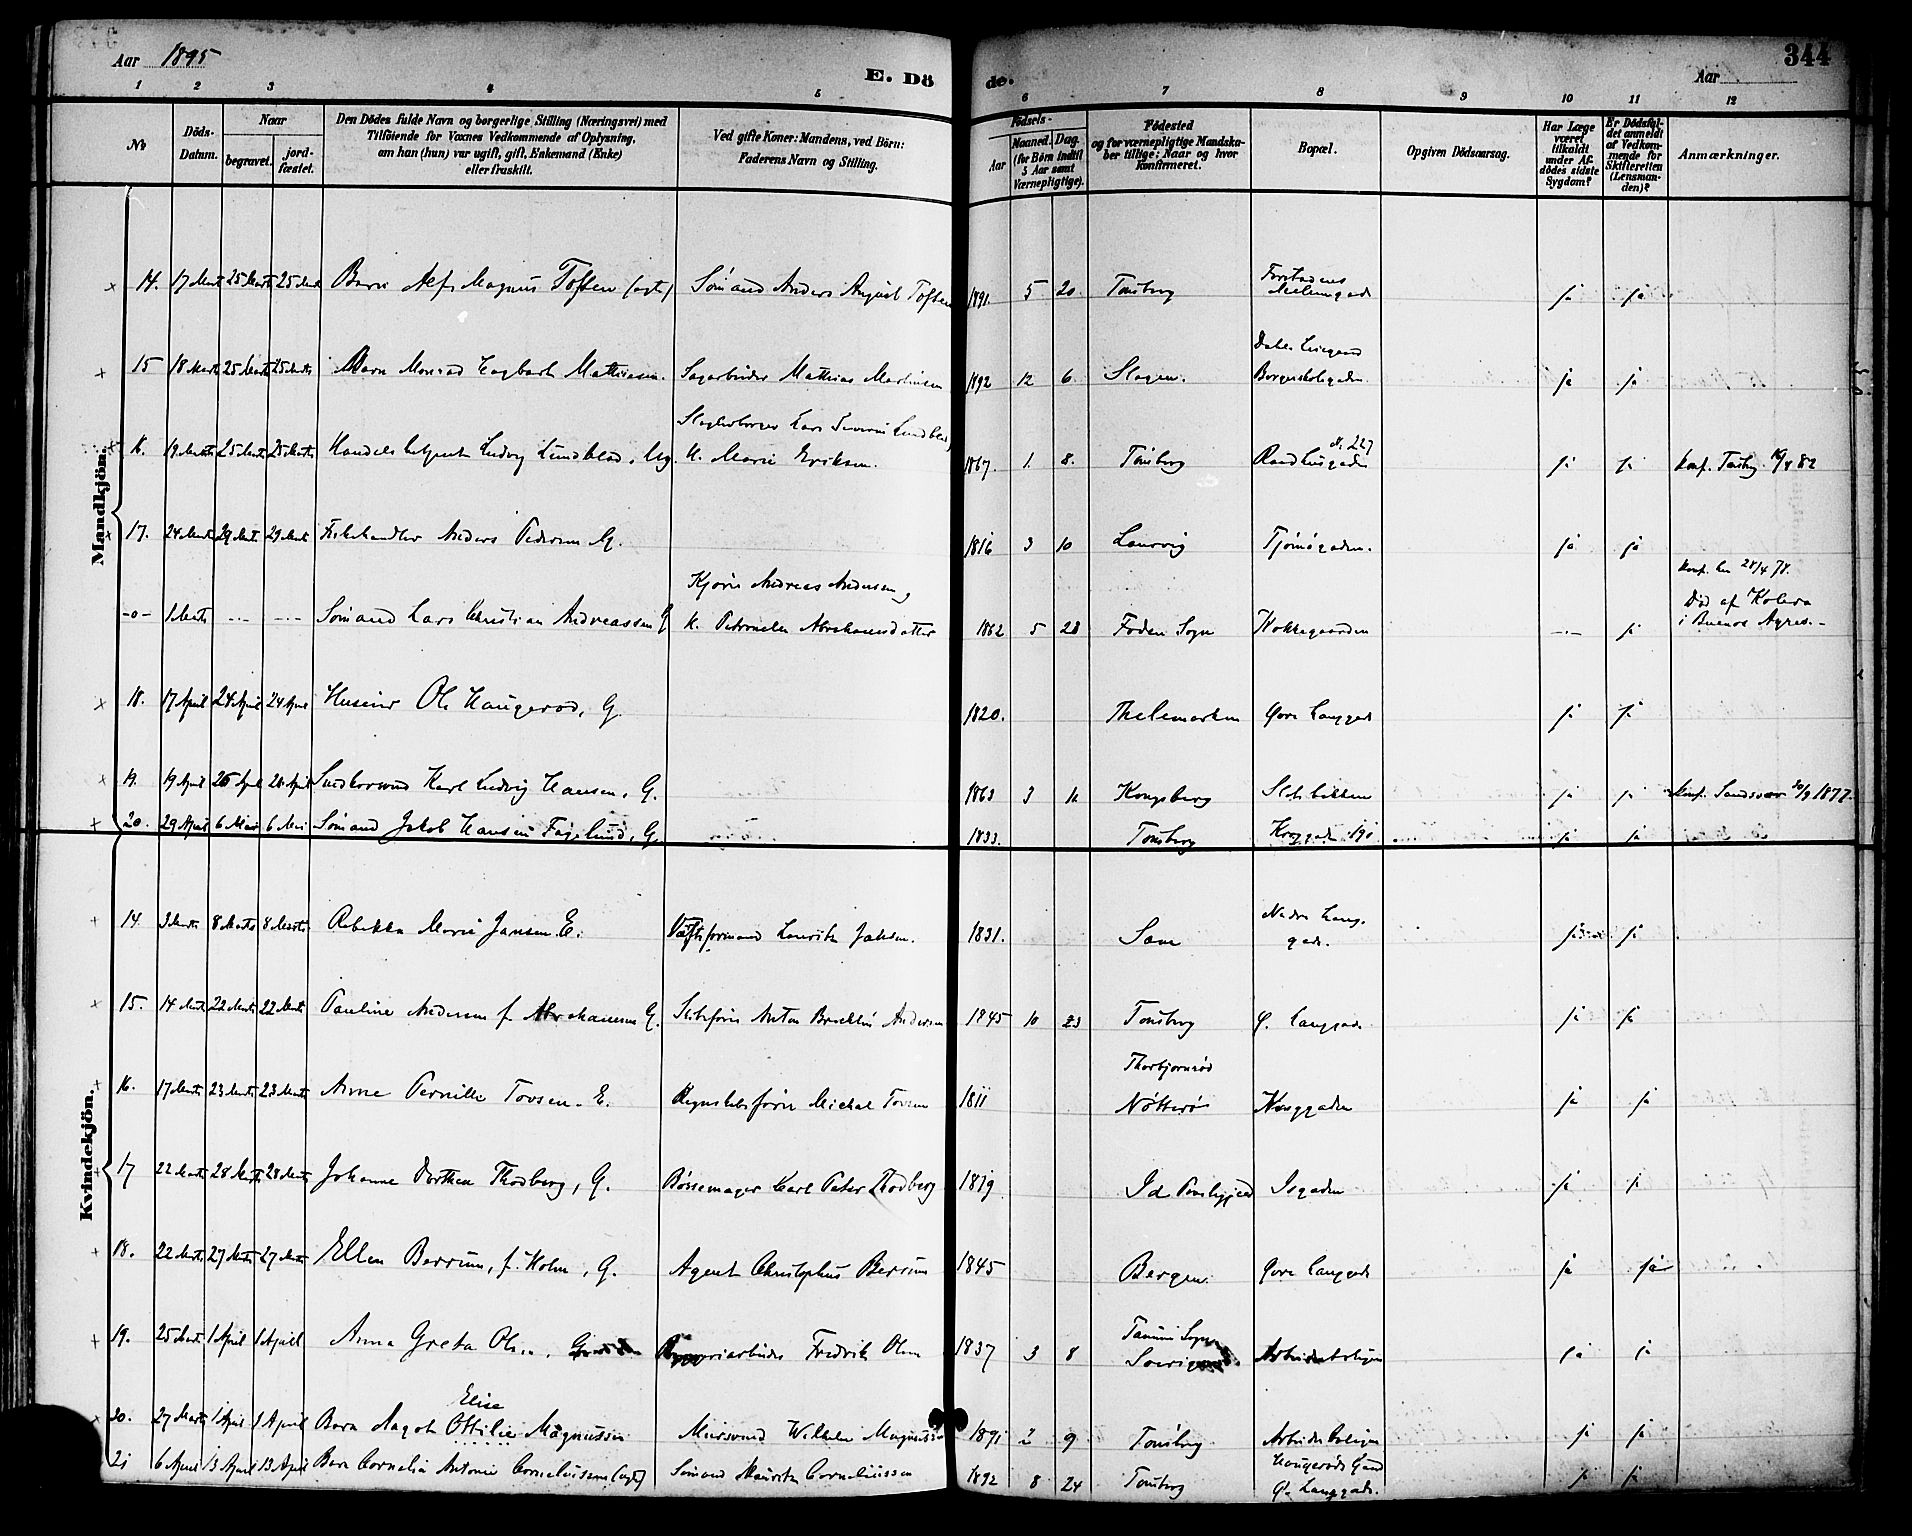 Aar 1895
E. Dö
de.
Aar
344
1 2 3 4 5 6 7 8 9 10 11 12
No
Döds-Datum.
Naar
begravet.
jord-fæstet.
Den Dödes fulde Navn og borgerlige Stilling (Næringsvei) med
Tilföiende for Voxnes Vedkommende af Oplysning,
om han (hun) var ugift, gift, Enkemand (Enke)
eller fraskilt.
Ved gifte Koner: Mandens, ved Börn:
Faderens Navn og Stilling.
Födsels-
Aar
Maaned. Dag.
(for Börn indtil
5 Aar samt
Værnepligtige).
Födested
og for værnepligtige Mandska-
ber tillige: Naar og hvor
konfirmeret.
Bopæl.
Opgiven Dödsaarsag.
Har Læge
været
tilkaldt
under Af-
dödes sidste
Sygdom?
Er Dödsfal-
det anmeldt
af Vedkom-
mende for
Skifteretten
(Lensman-
den)?
Anmærkninger.
Mandkjön.
14. 17 Marts 25 Marts 25 Marts Barn Alf Magnus Toften (ægte) Sömand Anders August Toften 1891. 5 20 Tönsberg ja ja
15 18 Marts 25 Marts 25 Marts Barn Monrad Hagbart Mathisen. Sagarbeider Mathias Martinsen 1892 12 6. Slagen. Borgerskolegaden ja ja
16. 19 Marts 25 Marts 25 Marts Handelsbetjent Ludvig Lundblad, Ug. Lars Severin Lundblad
H. Marie Eriksen. 1867. 1. 8. Tönsberg Raadhusgaden N. 227 ja ja Konf. Tönsberg 82
17. 24 Marts 29 Marts 29 Marts Fiskehandler Anders Pedersen G. 1816 3 10 Laurvig Tjömögaden. ja ja
-o- 1 Marts -.- -.- Sömand Lars Christian Andreassen G Andreas Andersen,
k. Petronelle Abrahamsdatter 1862 5 28 Foden Sogn Kokkegaarden -.- ja Konf. her 28/4 78.
Död af Kolera
i Buenos Ayres.-
18. 17 April 24 April 24 April Ole Haugerod, G. 1820. Thelemarken Övre Langgade ja ja
19. 19 April 26 April 26 April Karl Ludvig Hansen, G. 1863 3 Kongsberg Slotsbakken ja ja Konf. Sandsvær 30/9 1877.
20. 29 April 6 Mai 6 Mai Sömand Jakob Hansen Fagelund, G. 1833. Tönsberg 190 ja ja
Kvindekjön.
14. 3 Marts 8 Marts 8 Marts Rebekka Marie Jansen E. Lauritz 1831. Sem Nedre Lang-
gade. ja ja
15. 14 Marts 22 Marts 22 Marts Pauline Andersen f. Abrahamsen G. Skibsförer Anton Andersen 1845 10 23 Tönsberg Ö. Langgade ja ja
16. 17 Marts 23 Marts 23 Marts Anne Pernille Tovsen. E. Regnskabsförer Michal Tovsen 1811 Thorbjörnröd
Nötterö ja ja
17 22 Marts 28 Marts 28 Marts Johanne Dorthea Thodberg, G. Börsemager Karl Peter Thodberg 1819 Id ja ja
18. 22 Marts 27 Marts 27 Marts Ellen Berrum, f. Holm, G. Agent Christophus Berrum 1845 Bergen. Övre Langgade ja ja
19. 25 Marts 1 April 1 April Anna Greta Olsen. Fredrik Olsen 1837 3 8 Tanum Sogn
Sverige Arbeiderboligen ja ja
20. 27 Marts 1 April 1 April Barn Dagot Ottilie Elise Magnussen Wilhelm Magnussen 1891 2 9 Tönsberg Arbeiderboligen ja ja
21 6 April 13 April 13 April Barn Cornelia Antonie Corneliussen (ægte) Sömand Mauritz Corneliussen 1892 8 24 Tönsberg Haugerøds Gaard
Ö. Langgade. ja ja